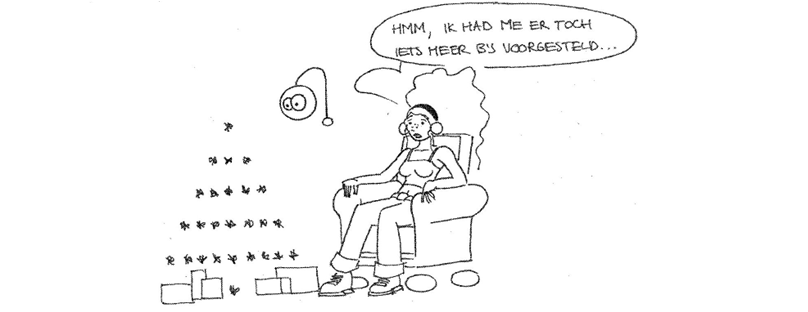 HMM, IK HAD ME ER TOCH
IETS MEER BIJ VOORGESTELD...